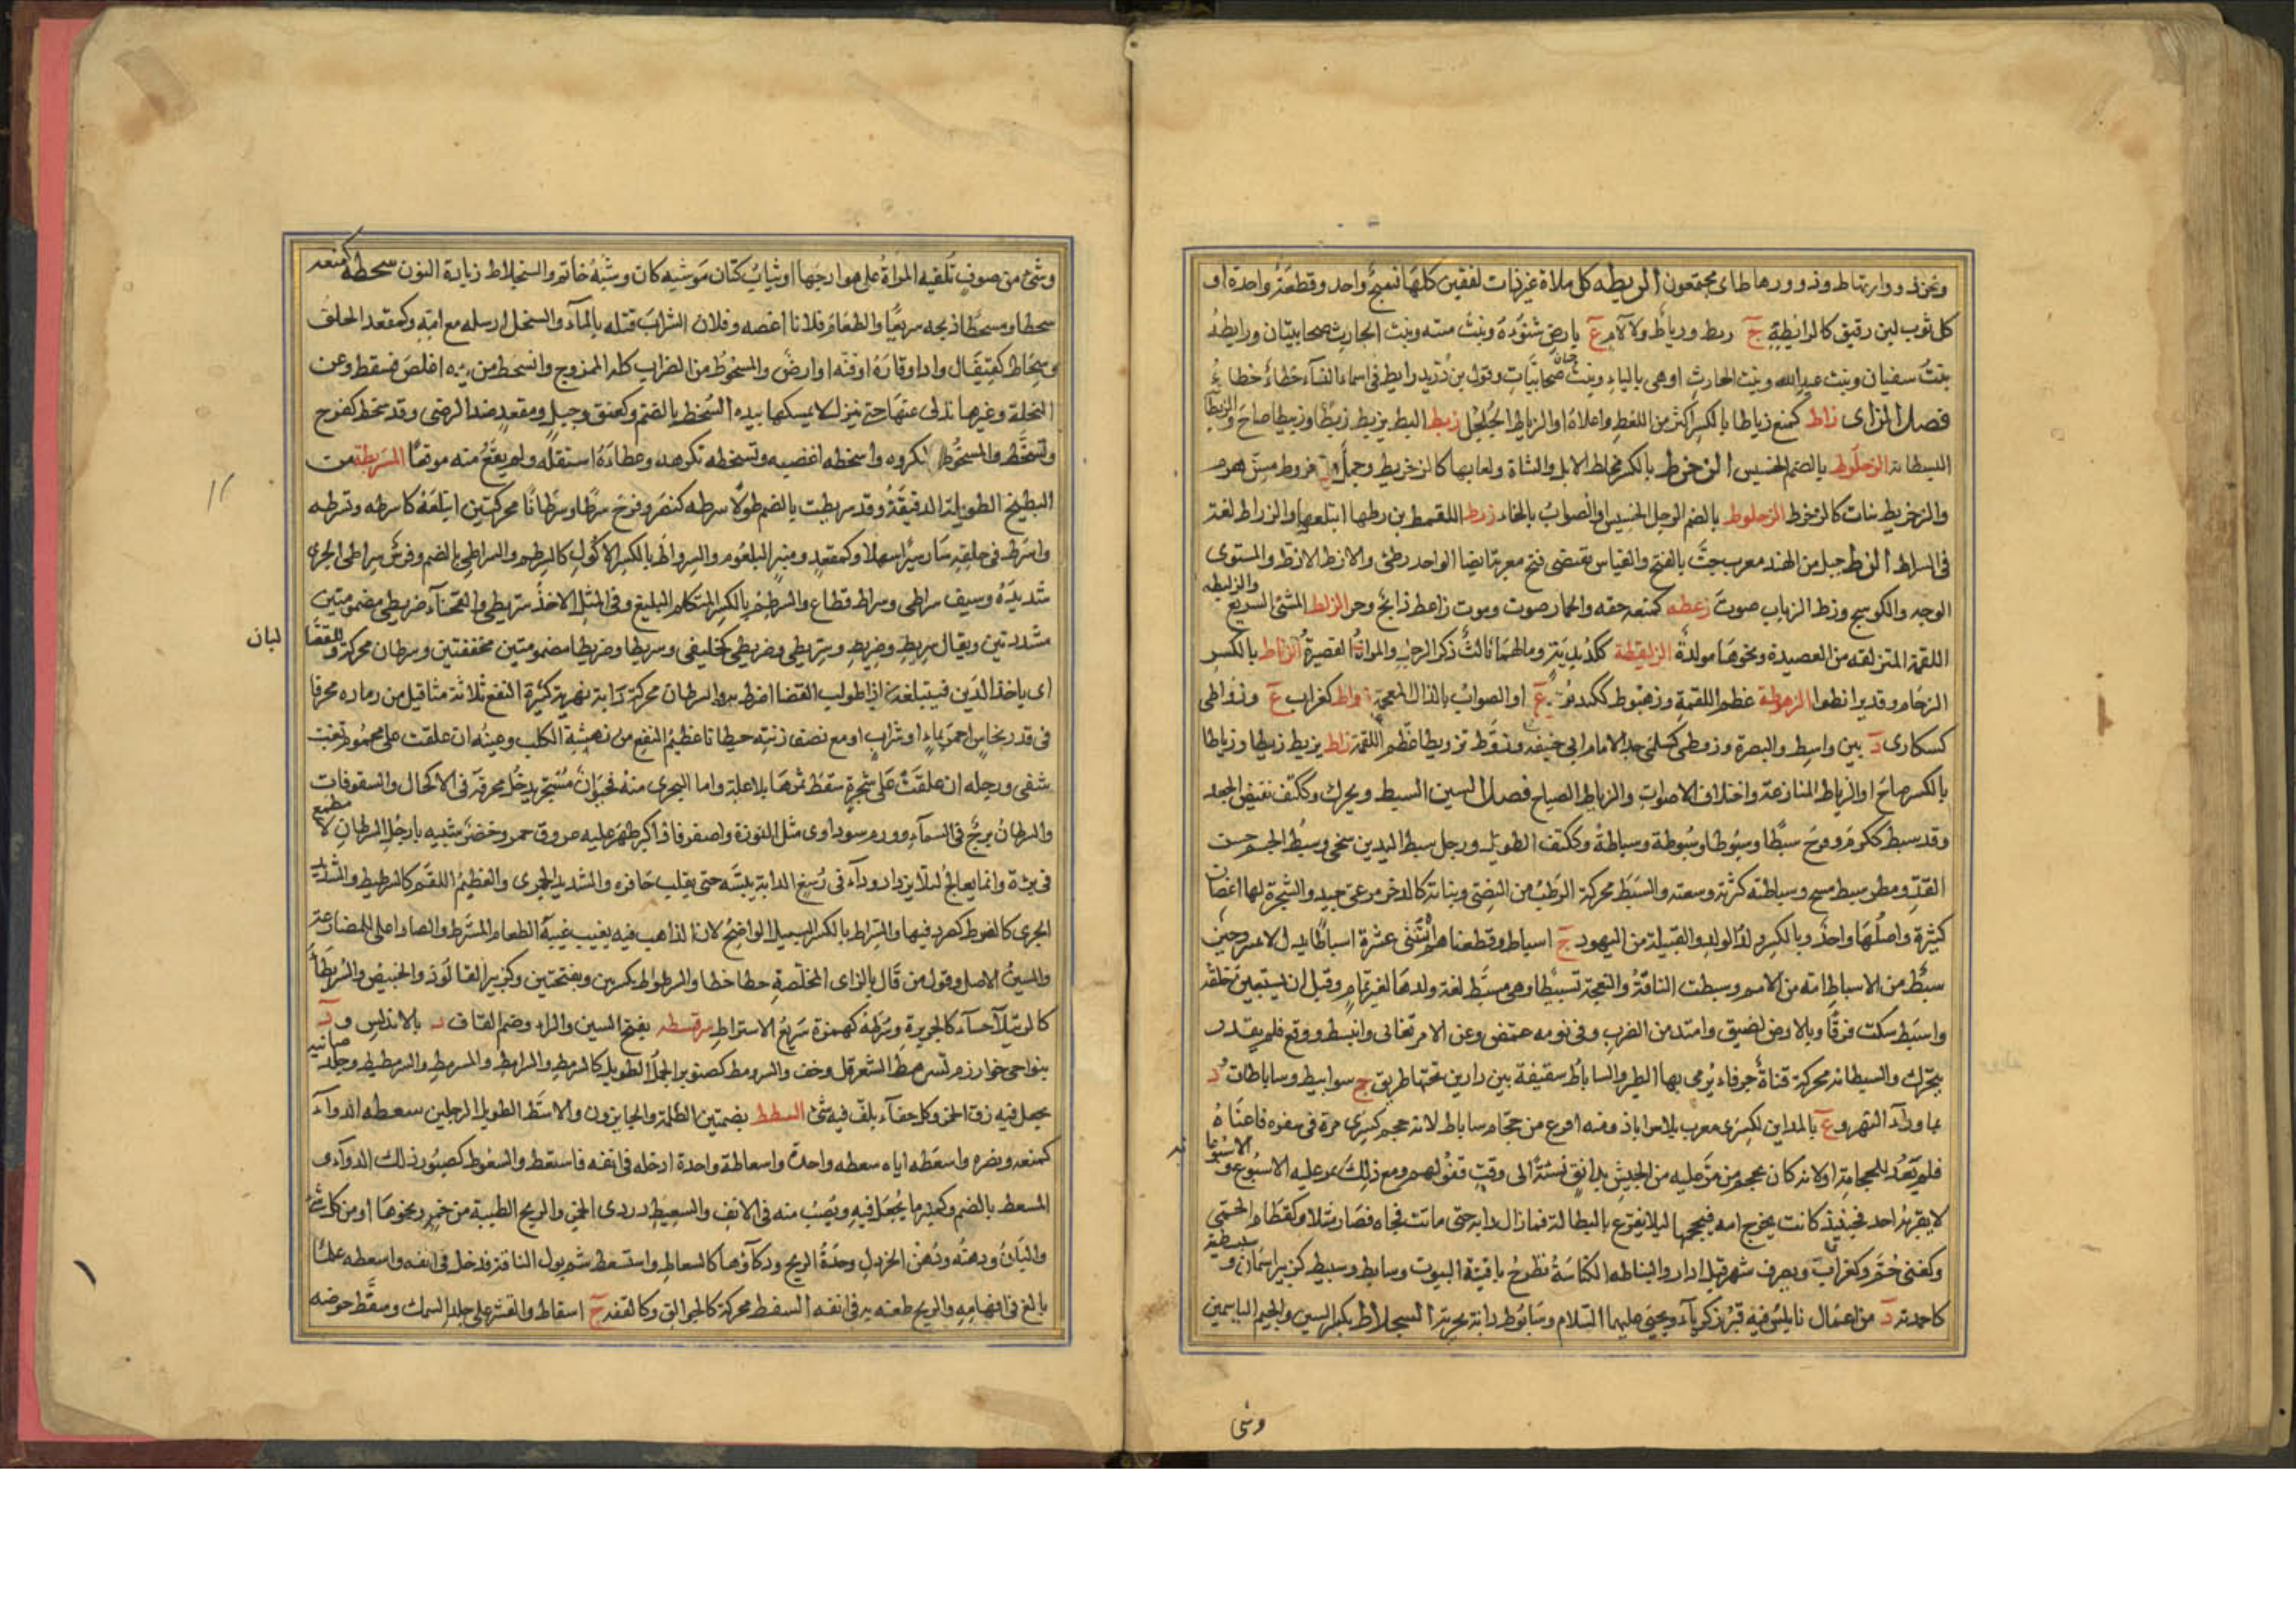 ونحن ذوو ارتهاط وذوو رهاط اى مجتمعون الريطه كل ملاة غير ذات لفقين كلها نسج واحد وقطعة واحدة او
كل ثوب لين رقيق كالرائطة ج ريط ورياط ولا لام ع بارض شنوءة وبنت منبه وبنت الحارث صحابيتان ورايطه
بنت سفيان وبنت عبد الله وبنت الحارث او هى بالياء وبنت حيان صحابيات وقول بن دريد رايط فى اسماء النساء خطاء خطاء
فصل الزاى زاط كمنع زياطا بالكسر اكثر من اللغط واعلاه او الزياط الجلجل زبط البط يزبط زبطا وزبيطا صاح والزبطا
الزحلوط بالضم الخسيس الزخرط بالكسر مخاط الابل والشاة ولعابها كالزخريط وجمل زخروط مسن هرم
والزخريط نبات كالزخرط الزخلوط بالضم الرجل الخسيس او الصواب بالحاء زرط اللقمة بن رطها ابتلعها والزراط لغة
فى السراط الزط جيل من الهند معرب جت بالفتح والقياس يقتضى فتح معربة ايضا الواحد زطى والازط الاذط والمستوى
الوجه والكوسج وزط الذباب صوت زعطه كمنعه خنقه والحمار صوت وموت زاعط ذابح وحى الزلط المشى السريع
والزليطه
اللقمة المنزلقه من العصيدة ونحوها مولدة الزلقيطة ذكر الرجل والمراة القصيرة الزناط بالكسر
الزحام وقد تزانطوا الزهوطة عظم اللقمة وزهبوط ع او الصواب بالذال المعجمة زواط كغراب ع وزواطى
كسكارى د بين واسط والبصرة وزوطى كسلمى جد الامام ابى حنيفه وزوط تزويطا عظم اللقمة زاط يزيط زيطا وزياطا
بالكسر صاح او الزياط المنازعة واختلاف الاصوات والزياط الصياح فصل السين السبط ويحرك وككتف نقيض الجعد
وقد سبط ككرم وفرح سبطا وسبوطا وسبوطة وسباطة وككتف الطويل ورجل سبط اليدين سخى وسبط الجسم حسن
القد ومطر سبط سح وسباطته كثرته وسعته والسبط محركة الرطب من النصى ونباته كالدخن مرعى جيد والشجرة لها اغصان
كثيرة واصلها واحد وبالكسر ولد الولد والقبيلة من اليهود ج اسباط وقطعناهم اثنتى عشرة اسباطا بدل لا تمييز وحين
سبط من الاسباط امة من الامم وسبطت الناقة والنعجة تسبيطا وهى مسبط لغة ولدها لغير تمام وقبل ان يستبين خلقه
واسبط سكت فرقا وبالارض لصق وامتد من الضرب وفى نومه غمض وعن الامر تغابى وانبسط ووقع فلم يقدر
يتحرك والسبطانه محركة قناة جوفاء يرمى بها الطير والساباط سقيفة بين دارين تحتها طريق ج سوابيط وساباطات ود
بما وراء النهر وع بالمداين لكسرى معرب بلاس اباذ ومنه افرغ من حجام ساباط لانه حجم كسرى مرة فى سفره فاغناه
فلم يعد للحجامة او لانه كان يحجم من مر عليه من الجيش بدانق نسئة الى وقت قفولهم ومع ذلك يمر عليه الاسبوع و
الاسبوعا
لا يقربه احد فحينئذ كانت يخرج امه فيحجمها ليلا يقرع بالبطالة فما زال دابه حتى ماتت فجاه فصار مثلا وكقطام الحمى
وكغنى ختم وكغراب ويصرف شهر قبل اذار والسباطه الكناسة تطرح بافنية البيوت وسابط وسبيط كزبير اسمان و
سبسطية
كاحمدية د من اعمال نابلس فيه قبر زكريآء ويحيى عليهما السلام وسابوط دابة بحرية السجلاط بكسر السين والجيم الياسمين
وشى
وشئ من صوف تلقيه المراة على هوارجها او ثياب كتان موشيه كان وشيه خاتم والسنجلاط زيادة النون سحطه كمنعه
سحطا ومسحطا ذبحه سريعا والطعام فلانا اغصه وفلان الشراب قتله بالمآء والسخل ارسله مع امه وكمقعد الحلق
النخلة وغيرها تدلى عنها حتى ينزل لا يمسكها بيده السخط بالضم وكعنق وجبل ومقعد ضد الرضى وقد سخط كفرح
وتسخط والمسخوط المكروه واسخطه اغضبه وتسخطه تكرهه وعطاءه استقله ولم يقع منه موقعا المسربطة من
البطيخ الطويلة الدقيقة وقد سربطت بالضم طولا سرطه كنصر وفرح سرطا وسرطانا محركتين ابتلعه كاسترطه وتسرطه
وانسرط فى حلقه سار سيرا سهلا وكمقعد ومنبر البلعوم والسرواط بالكسر الاكول كالسرطم والسراطى بالضم وفرس سراطى الجرى
شديده وسيف سراطى وسراط قطاع والسرطم بالكسر المتكلم البليغ وفى المثل الاخذ سريطى والقضاء ضريطى مضمومتين
مشددتين ويقال سريط وضريط وسريطى وضريطى كخليفى وسريطا وضريطا مضمومتين مخففتين وسرطان محركة والقضا
لبان
اى ياخذ الدين فيبتلعه فاذا طولب للقضا اضرط به والسرطان محركة دابة نهرية كثيرة النفع ثلاثة مثاقيل من رماده محرقا
فى قدر نحاس احمر بماء او شراب او مع نصف زنته جنطيانا عظيم النفع من نهشة الكلب وعينه ان علقت على محموم بغب
شفى ورجله ان علقت على شجرة سقط ثمرها بلا علة واما البحرى منه فحيوان مستحجر يدخل محرقه فى الاكحال والسفوفات
والسرطان برج فى السمآء وورم سوداوى مثل اللوزة واصغر فاذا كبر ظهر عليه عروق حمر وخضر شبيه بارجل السرطان لا
مطمع
فى برئه وانما يعالج لئلا يزداد ودآء فى رسغ الدابة ييبسه حتى يقلب حافره والشديد الجرى والعظيم اللقم كالسرطيط والشديد
الجرى كالسرط كصرد فيهما والسراط بالكسر السبيل الواضح لان الذاهب فيه يغيب غيبة الطعام المسترط والصاد اعلى للمضارعة
والسين الاصل وقول من قال بالزاى المخلصة خطا خطا والسرطراط بكسرتين وبفتحتين وكزبير الفالوذ والخبيص والسريطاء
كالرتيلآء حسآء كالحريرة وسرطة كهمزة سريع الاستراط سرقسطه بفتح السين والراء وضم القاف د بالاندلس ود
بنواحى خوارزم تسرمط الشعر قل وخف والسرومط كصنوبر الجمل الطويل كالسرمط والسرامط والمسرمط والسرمطيط وجلد ضائنة
يجعل فيه زق الخمر وكل خفآء يلف فيه شئ السطط بضمتين الظلمة والجايزون والاسط الطويل الرجلين سعطه الدوآء
كمنعه ونصره واسعطه اياه سعطه واحدة واسعاطة واحدة ادخله فى انفه فاستعط والسعوط كصبور ذلك الدوآء و
المسعط بالضم وكمنبر ما يجعل فيه ويصب منه فى الانف والسعيط دردى الخمر والريح الطيبة من خمر ونحوها او من كل شئ
والبان ودهنه ودهن الخردل وحدة الريح وذكآؤها كالسعاط واستسعط شم بول الناقة فدخل فى انفه واسعطه علما
بالغ فى افهامه والريح طعنه به فى انفه السفط محركة كالجوالق وكالقفه ج اسفاط والقشر على جلد السمك وسفط حوضه